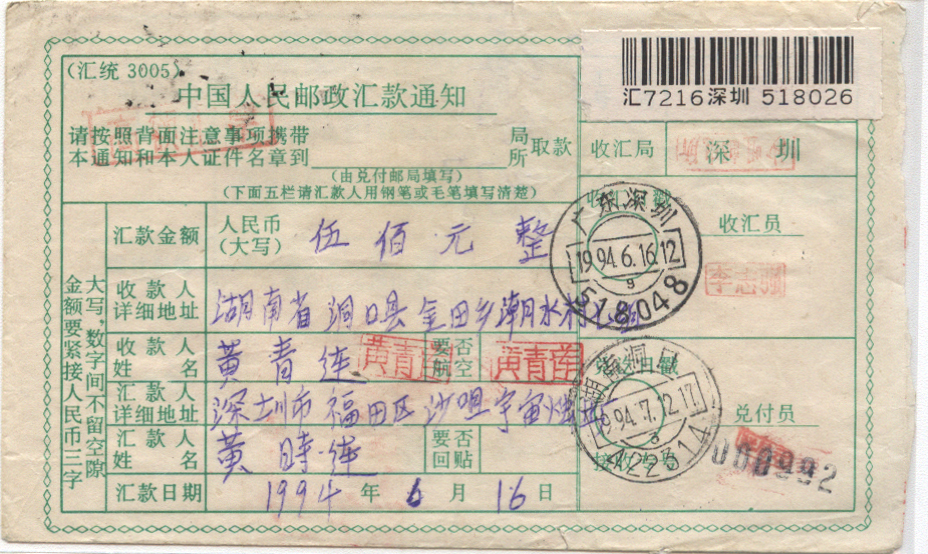 (汇统 3005)
汇7216深圳 518026
中国人民邮政汇款通知
请按照背面注意事项携带
本通知和本人证件名章到 局所 取款
(由兑付邮局填写)
(下面五栏请汇款人用钢笔或毛笔填写清楚)
收汇局 深圳
大写,数字间不留空隙
金额要紧接人民币三字
汇款金额 人民币(大写) 伍佰元整
收汇员
李志强
广东深圳
1994.6.16.12
9
518048
收款人详细地址 湖南省洞口县金田乡潮水村
收款人姓名 黄青连
黄青莲
要否航空
黄青莲
汇款人详细地址 深圳市福田区沙咀宇宙
洞口
1994.7.12.17
422314
兑付员
汇款人姓名 黄时连
要否回贴
000992
汇款日期 1994年6月16日